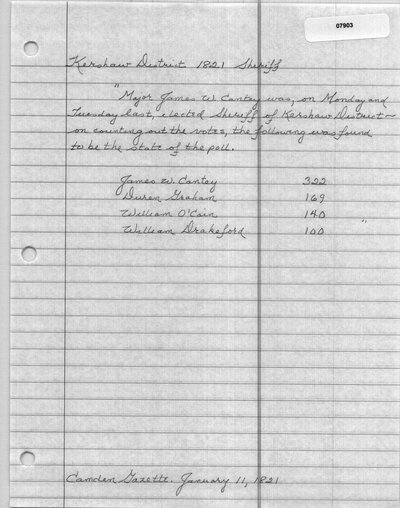 07903
Kershaw District 1821 Sheriff
"Major James W. Cantey was, on Monday and
Tuesday last, elected Sheriff of Kershaw District ~
on counting out the votes, the following was found
to be the state of the poll.
James W. Cantey 322
Duren Graham 169
William O'Cain 140
William Drakeford 100 "
Camden Gazette. January 11, 1821